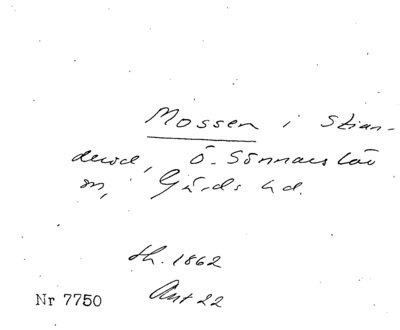 Mossen i Stian-
derod, Ö. Sönnarslöv
sn, Gärds hd.
th. 1862
Ant 22
Nr 7750